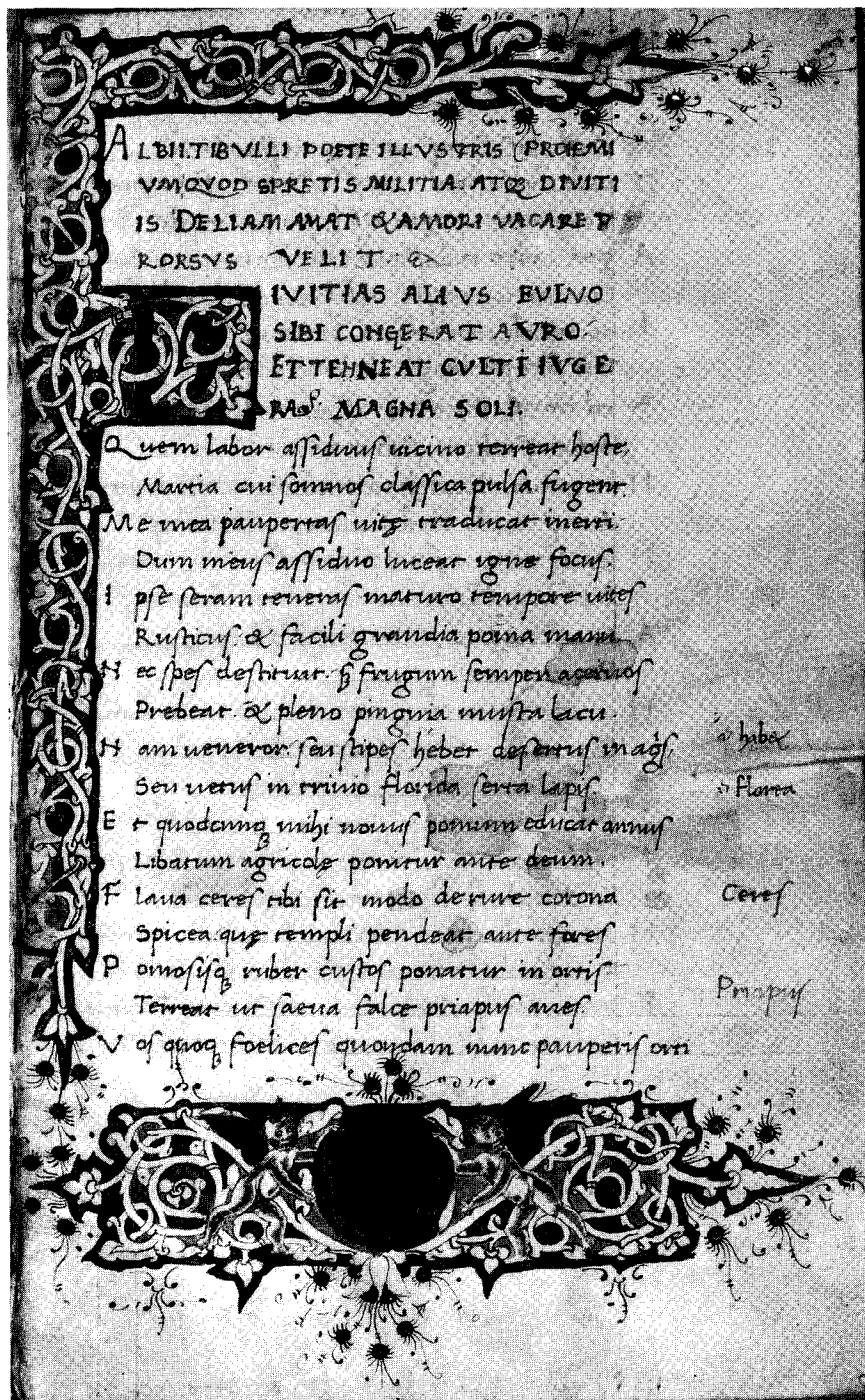 ALBII.TIBVLLI POETE ILLVSTRIS PROHEMI
VM QVOD SPRETIS MILITIA ATQ DIVITI
IS DELIAM AMAT & AMORI VACARE P
RORSVS VELIT.
DIVITIAS ALIVS FVLVO
SIBI CONGERAT AVRO.
ET TENNEAT CVLTI IVGE
RA MAGNA SOLI.
Quem labor assiduus uicino terreat hoste,
Martia cui somnos classica pulsa fugent.
Me mea paupertas uitę traducat inerti.
Dum meus assiduo luceat igne focus.
Ipse seram teneras maturo tempore uites
Rusticus. & facili grandia poma manu.
Nec spes destituat. frugum semper aceruos
Prebeat. & pleno pinguia musta lacu.
Nam ueneror. seu stipes hebet desertus in agſ.
Seu uetus in triuio florida serta lapis
Et quodcunq mihi nouus pomum educat annus
Libatum agricolę ponitur ante deum.
Flaua ceres tibi sit modo de rure corona
Spicea quę templi pendeat ante fores
Pomosisq ruber custos ponatur in ortis
Terreat ut saeua falce priapus aues.
Vos quoq foelices quondam nunc pauperis orti
habet
florea
Ceres
Priapus